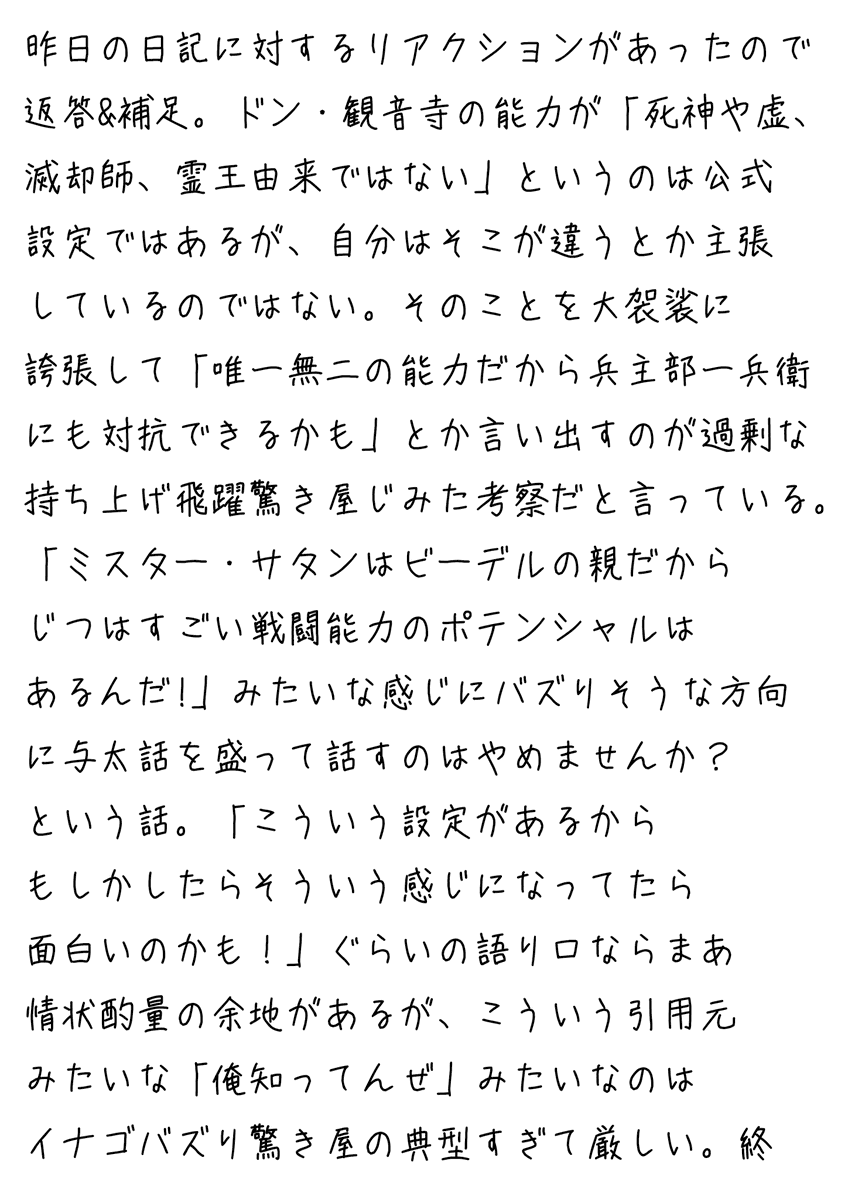 昨日の日記に対するリアクションがあったので
返答&補足。ドン・観音寺の能力が「死神や虚、
滅却師、霊王由来ではない」というのは公式
設定ではあるが、自分はそこが違うとか主張
しているのではない。そのことを大袈裟に
誇張して「唯一無二の能力だから兵主部一兵衛
にも対抗できるかも」とか言い出すのが過剰な
持ち上げ飛躍驚き屋じみた考察だと言っている。
「ミスター・サタンはビーデルの親だから
じつはすごい戦闘能力のポテンシャルは
あるんだ!」みたいな感じにバズりそうな方向
に与太話を盛って話すのはやめませんか?
という話。「こういう設定があるから
もしかしたらそういう感じになってたら
面白いのかも！」ぐらいの語り口ならまあ
情状酌量の余地があるが、こういう引用元
みたいな「俺知ってんぜ」みたいなのは
イナゴバズり驚き屋の典型すぎて厳しい。終